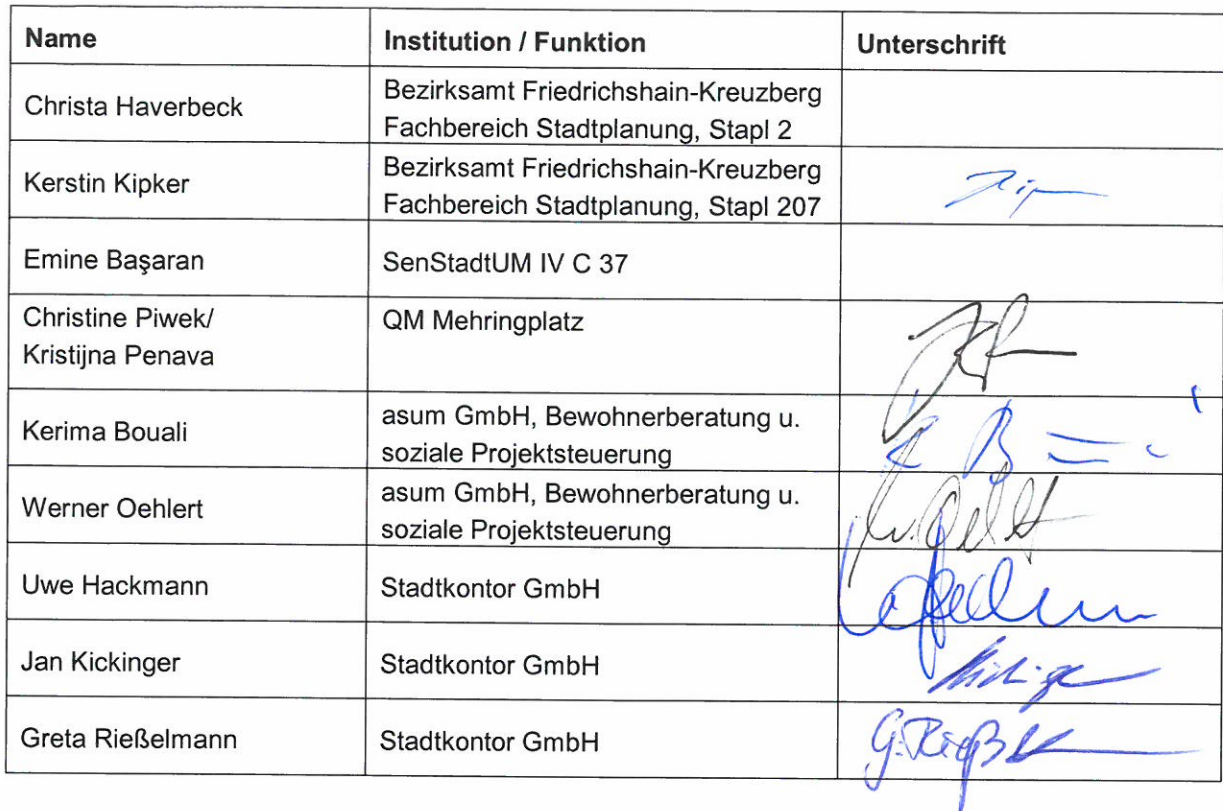 Name Institution / Funktion Unterschrift
Christa Haverbeck Bezirksamt Friedrichshain-Kreuzberg
Fachbereich Stadtplanung, Stapl 2
Kerstin Kipker Bezirksamt Friedrichshain-Kreuzberg
Fachbereich Stadtplanung, Stapl 207
Emine Başaran SenStadtUM IV C 37
Christine Piwek/ QM Mehringplatz
Kristijna Penava
Kerima Bouali asum GmbH, Bewohnerberatung u.
soziale Projektsteuerung
Werner Oehlert asum GmbH, Bewohnerberatung u.
soziale Projektsteuerung
Uwe Hackmann Stadtkontor GmbH
Jan Kickinger Stadtkontor GmbH
Greta Rießelmann Stadtkontor GmbH